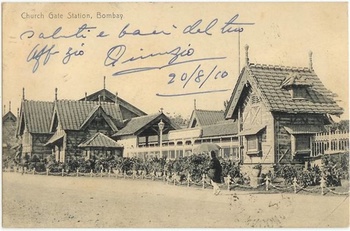 Church Gate Station, Bombay
saluti e baci del tuo
Aff zio
20/8/10